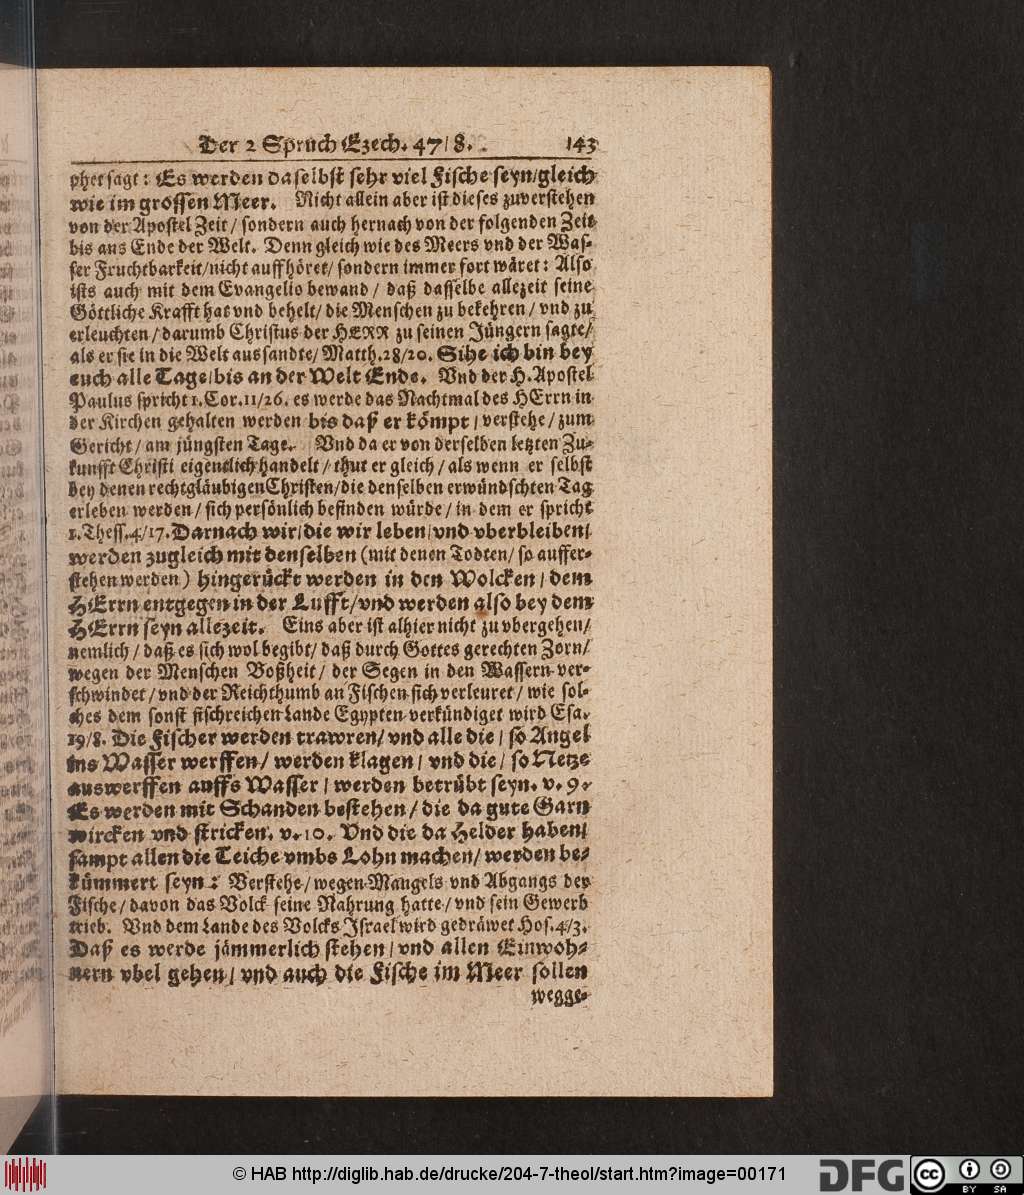 Der 2 Spruch Ezech. 47/ 8. 143
phet sagt: Es werden daselbst sehr viel Fische seyn/gleich
wie im grossen Meer. Nicht allein aber ist dieses zuverstehen
von der Apostel Zeit/ sondern auch hernach von der folgenden Zeit
bis ans Ende der Welt. Denn gleich wie des Meers vnd der Was-
ser Fruchtbarkeit/nicht auffhöret/ sondern immer fort wäret: Also
ists auch mit dem Evangelio bewand / daß dasselbe allezeit seine
Göttliche Krafft hat vnd behelt/ die Menschen zu bekehren/ vnd zu
erleuchten/ darumb Christus der HERR zu seinen Jüngern sagte/
als er sie in die Welt aussandte/ Matth.28/20. Sihe ich bin bey
euch alle Tage/bis an der Welt Ende. Vnd der H.Apostel
Paulus spricht 1.Cor.11/26. es werde das Nachtmal des HErrn in
der Kirchen gehalten werden bis daß er kömpt/ verstehe/ zum
Gericht/ am jüngsten Tage. Vnd da er von derselben letzten Zu-
kunfft Christi eigentlich handelt / thut er gleich / als wenn er selbst
bey denen rechtgläubigen Christen/die denselben erwündschten Tag
erleben werden / sich persönlich befinden würde/ in dem er spricht
1.Thess.4/17. Darnach wir/die wir leben/vnd vberbleiben/
werden zugleich mit denselben (mit denen Todten/ so auffer-
stehen werden) hingerückt werden in den Wolcken / dem
HErrn entgegen in der Lufft/vnd werden also bey dem
HErrn seyn allezeit. Eins aber ist alhier nicht zu vbergehen/
nemlich / daß es sich wol begibt/ daß durch Gottes gerechten Zorn/
wegen der Menschen Boßheit/ der Segen in den Wassern ver-
schwindet/ vnd der Reichthumb an Fischen sich verleuret/ wie sol-
ches dem sonst fischreichen Lande Egypten verkündiget wird Esa.
19/8. Die Fischer werden trawren/ vnd alle die / so Angel
ins Wasser werffen/ werden klagen/ vnd die/ so Netze
auswerffen auffs Wasser / werden betrübt seyn. v. 9.
Es werden mit Schanden bestehen / die da gute Garn
wircken vnd stricken. v.10. Vnd die da Helder haben/
sampt allen die Teiche vmbs Lohn machen/ werden be-
kümmert seyn: Verstehe/ wegen Mangels vnd Abgangs der
Fische/ davon das Volck seine Nahrung hatte/ vnd sein Gewerb
trieb. Vnd dem Lande des Volcks Israel wird gedräwet Hos.4/3.
Daß es werde jämmerlich stehen/ vnd allen Einwoh-
nern vbel gehen/ vnd auch die Fische im Meer sollen
wegge-
© HAB http://diglib.hab.de/drucke/204-7-theol/start.htm?image=00171
DFG
cc BY SA